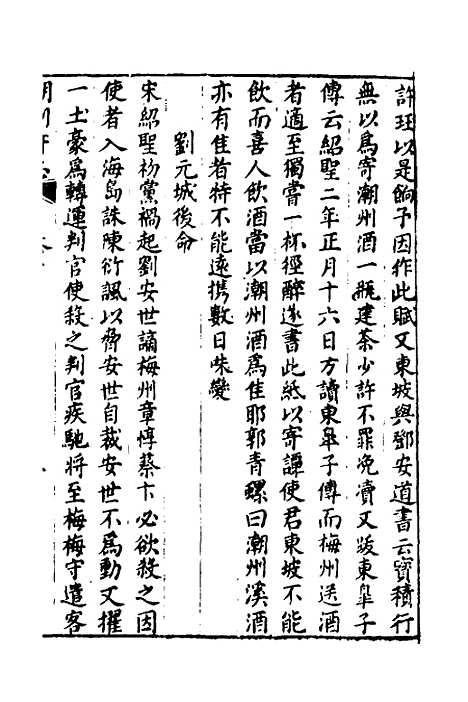 許珏以是餉予因作此賦又東坡與鄧安道書云寳積行
無以爲寄潮州酒一瓶建茶少許不罪浼瀆又跋東臯子
傳云紹聖二年正月十六日方讀東臯子傳而梅州送酒
者適至獨嘗一杯徑醉遂書此紙以寄譚使君東坡不能
飲而喜人飲酒當以潮州酒爲佳耶郭青螺曰潮州溪酒
亦有佳者特不能遠携數日味變
劉元城後命
宋紹聖初黨禍起劉安世謫梅州章惇蔡卞必欲殺之因
使者入海島誅陳衍諷以脅安世自裁安世不爲動又擢
一土豪爲轉運判官使殺之判官疾馳將至梅梅守遣客